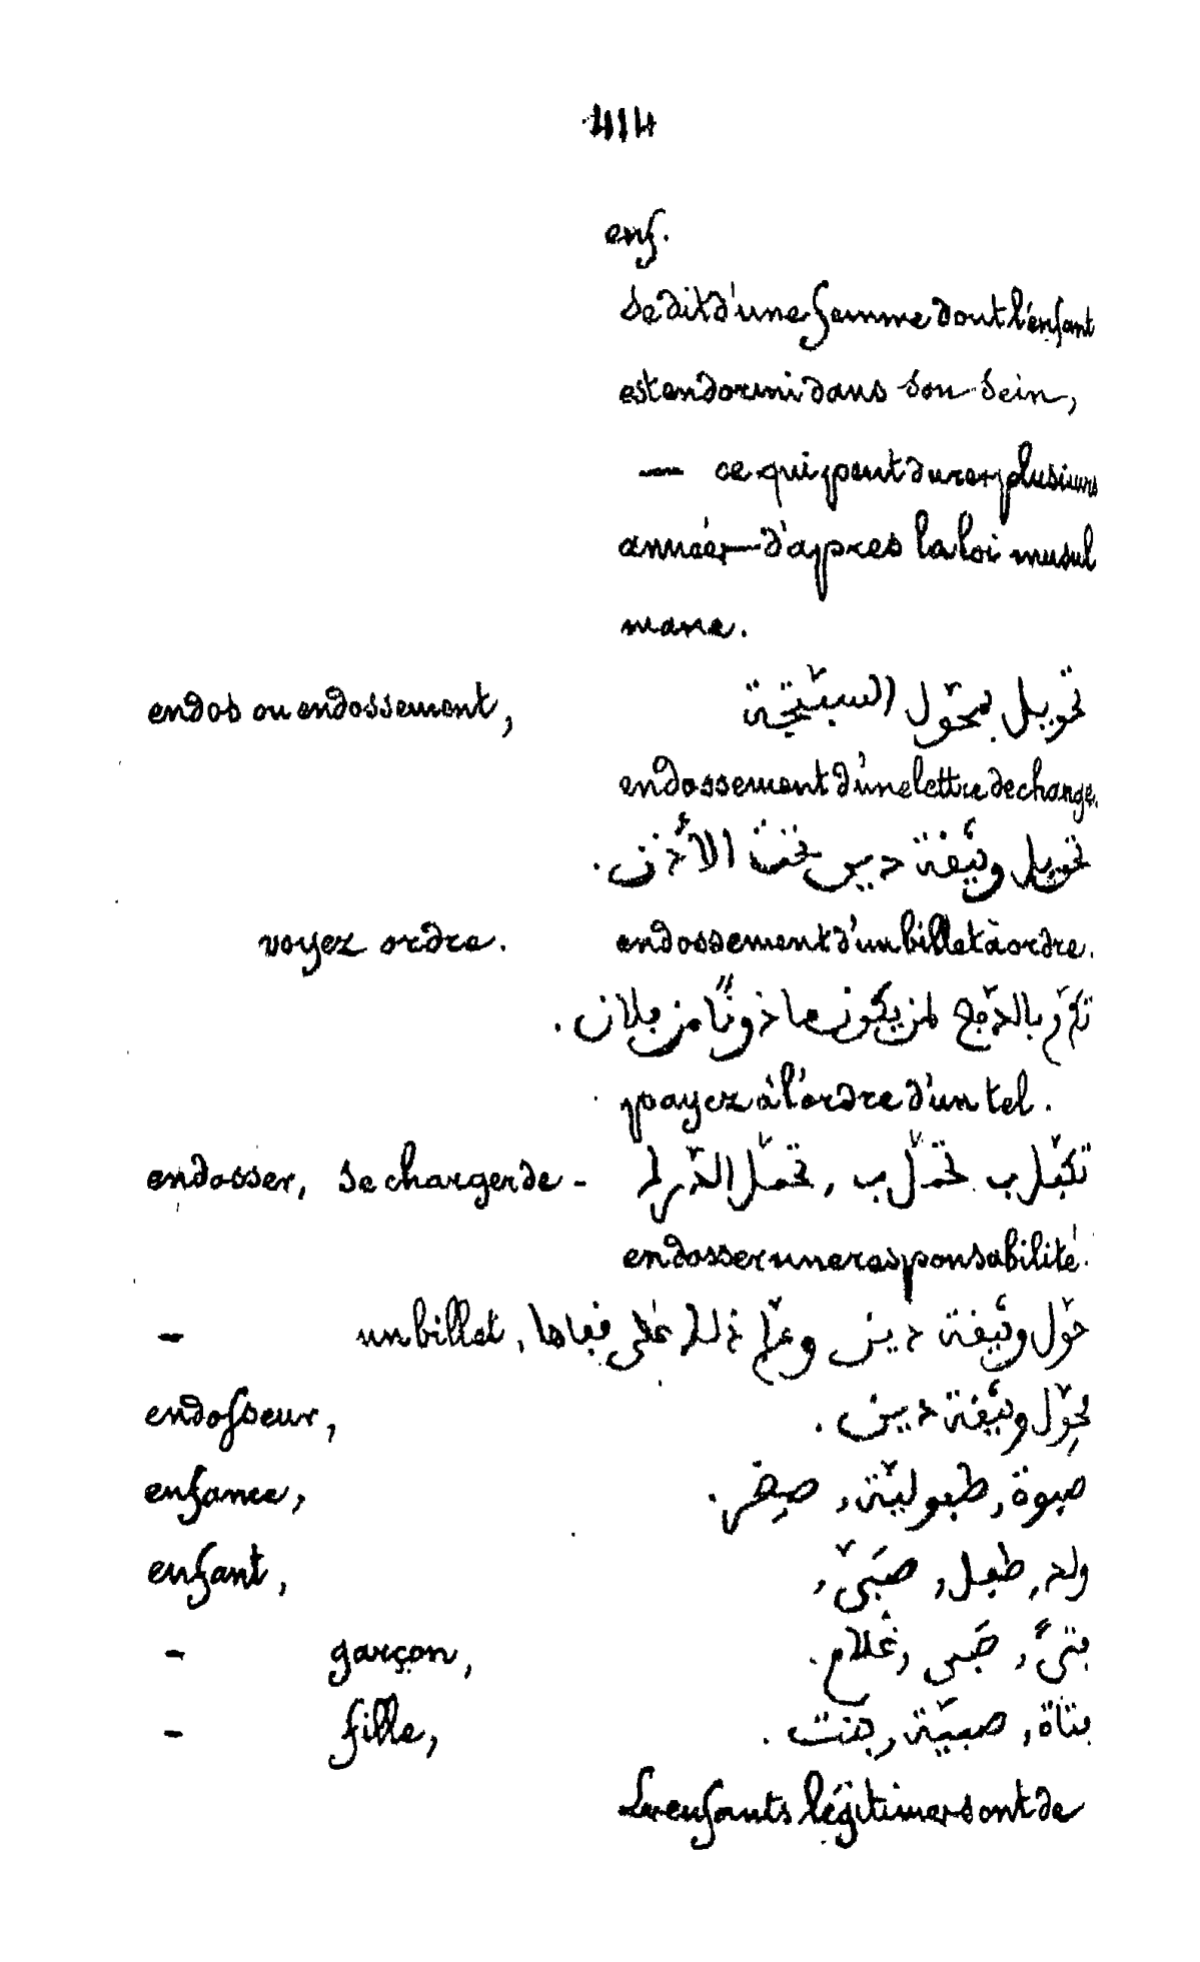 414
enf.
se dit d'une femme dont l'enfant
est endormi dans son sein,
— ce qui peut durer plusieurs
années — d'après la loi musul
mane.
endos ou endossement, تحويل السفتجة
endossement d'une lettre de change.
تحويل وثيقة دين تحت الأذن.
voyez ordre. endossement d'un billet à ordre.
بالدفع لمن يكون ماذونًا من فلان.
payez à l'ordre d'un tel.
endosser, se charger de - تكفّل ب تحمّل ب, تحمّل الدرك
endosser une responsabilité.
- un billet, حوّل وثيقة دين وعلّم ذلك على قفاها
endosseur, محوّل وثيقة دين.
enfance, صبوة, طفوليّة, صغر.
enfant, ولد, طفل, صَبيّ,
- garçon, فتىً, صَبي, غُلام.
- fille, فتاة, صبيّة, بنت.
Les enfants légitimes sont de